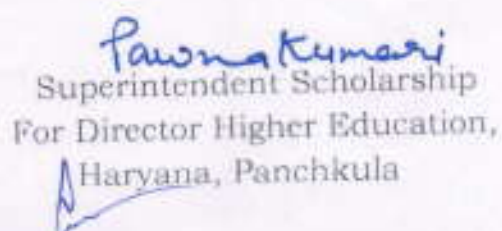 Pawna Kumari
Superintendent Scholarship
For Director Higher Education,
Haryana, Panchkula